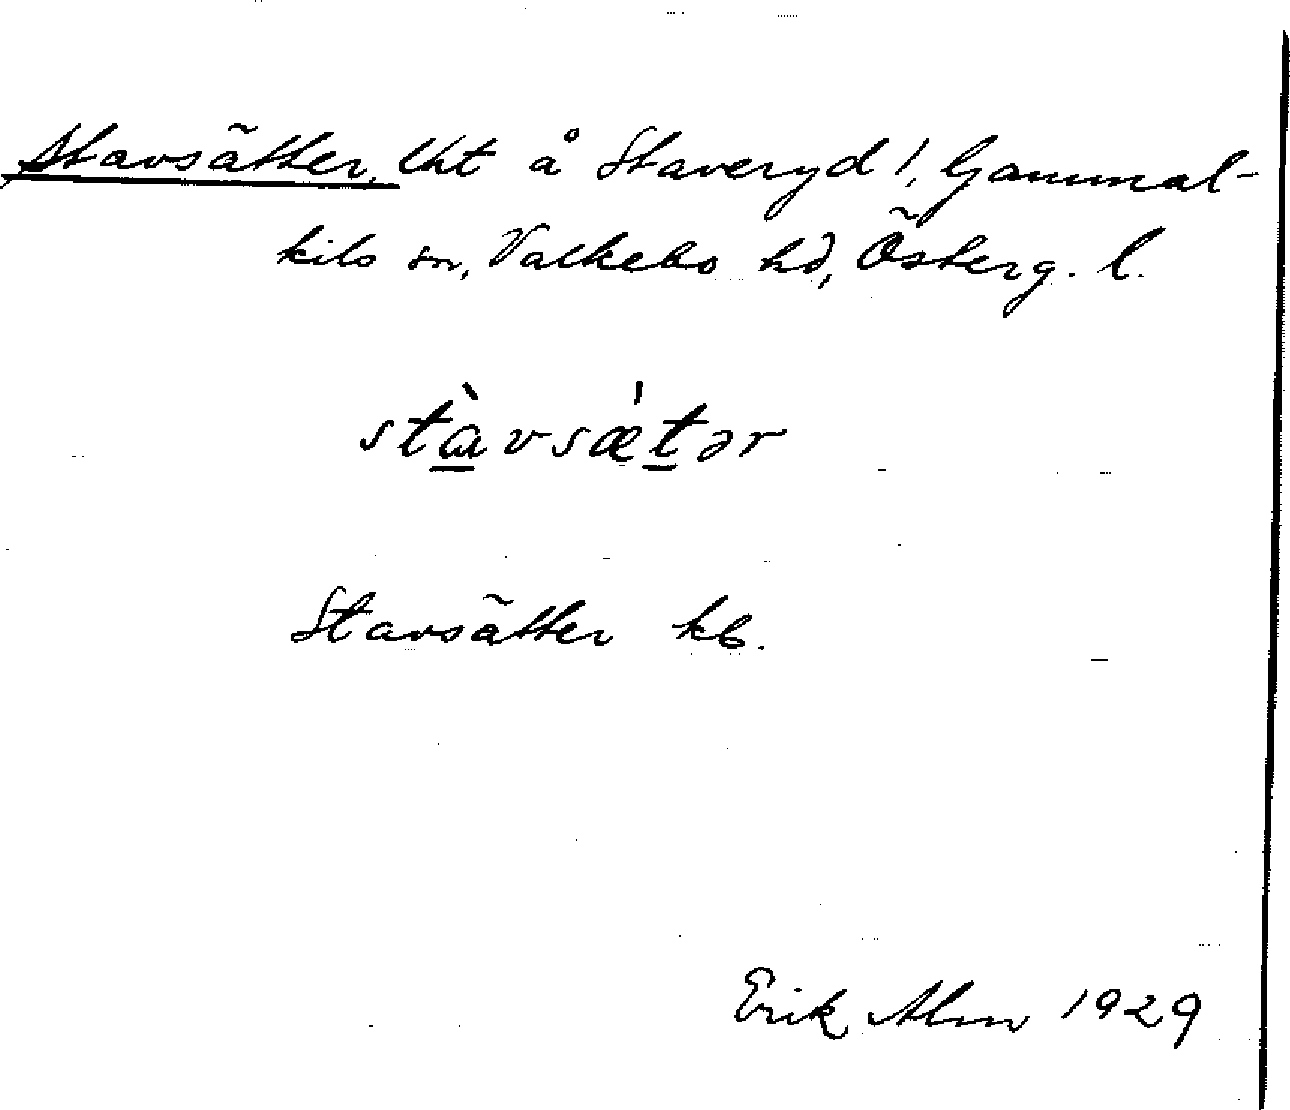 Stavsätter, lht å Staveryd 1, Gammal-
kils sn, Valkebo hd, Österg. l.
stàvsæ̀tər
Stavsätter kb.
Erik Alm 1929